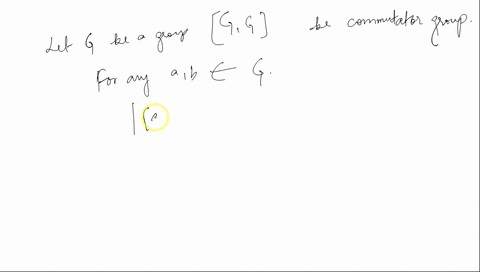 Let G be a group [G,G] be commutator group.
For any a,b ∈ G.
|[